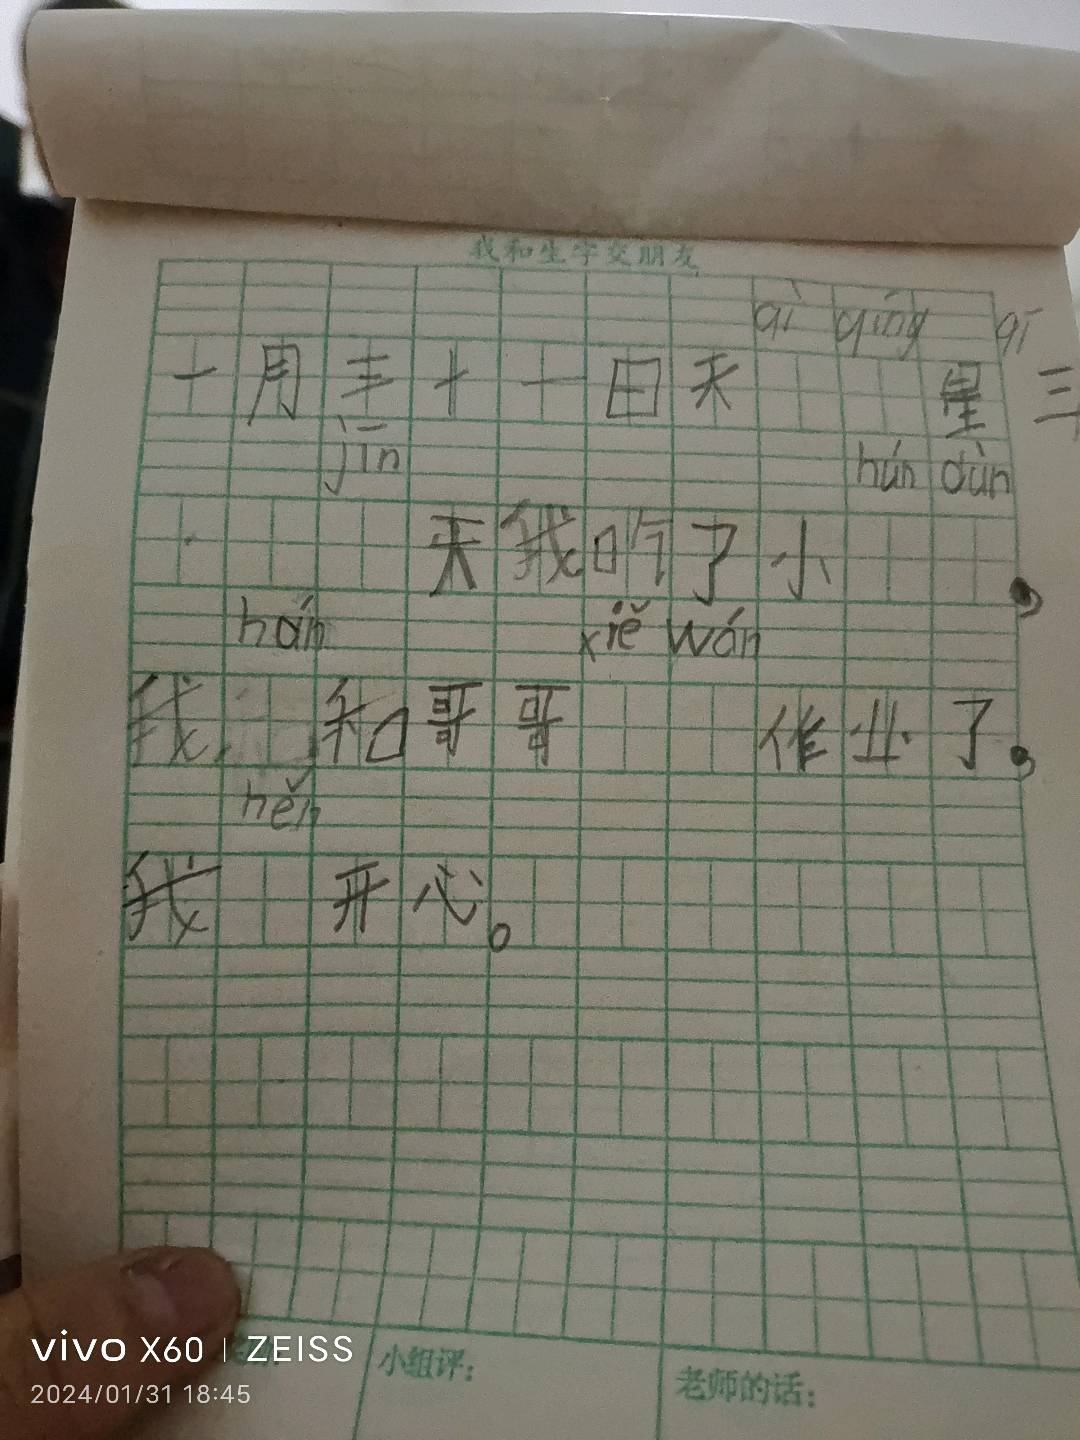 我和生字交朋友
qì qíng qī
一月三十一日天 星三
jīn hún dùn
天我吃了小,
hán xiě wán
我 和哥哥 作业了。
hěn
我 开心。
小组评:
老师的话:
vivo X60 | ZEISS
2024/01/31 18:45